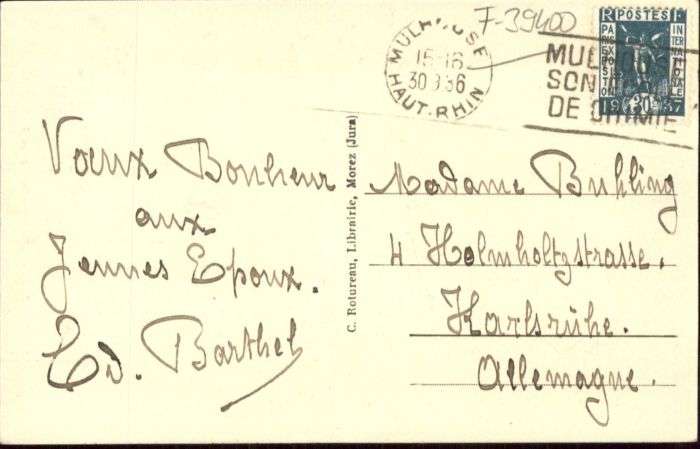 F-39400
MULHOUSE
15-16
30 9 36
HAUT-RHIN
MUL
SON
DE CHIMIE
RF POSTES
PARIS EXPOSITION
INTERNATIONALE
1937
Vœux Bonheur
aux
Jeunes Epoux.
Ed. Barthel
C. Rotureau, Librairie, Morez (Jura)
Madame Buhling
4 Holmholtzstrasse.
Karlsrühe.
Allemagne.